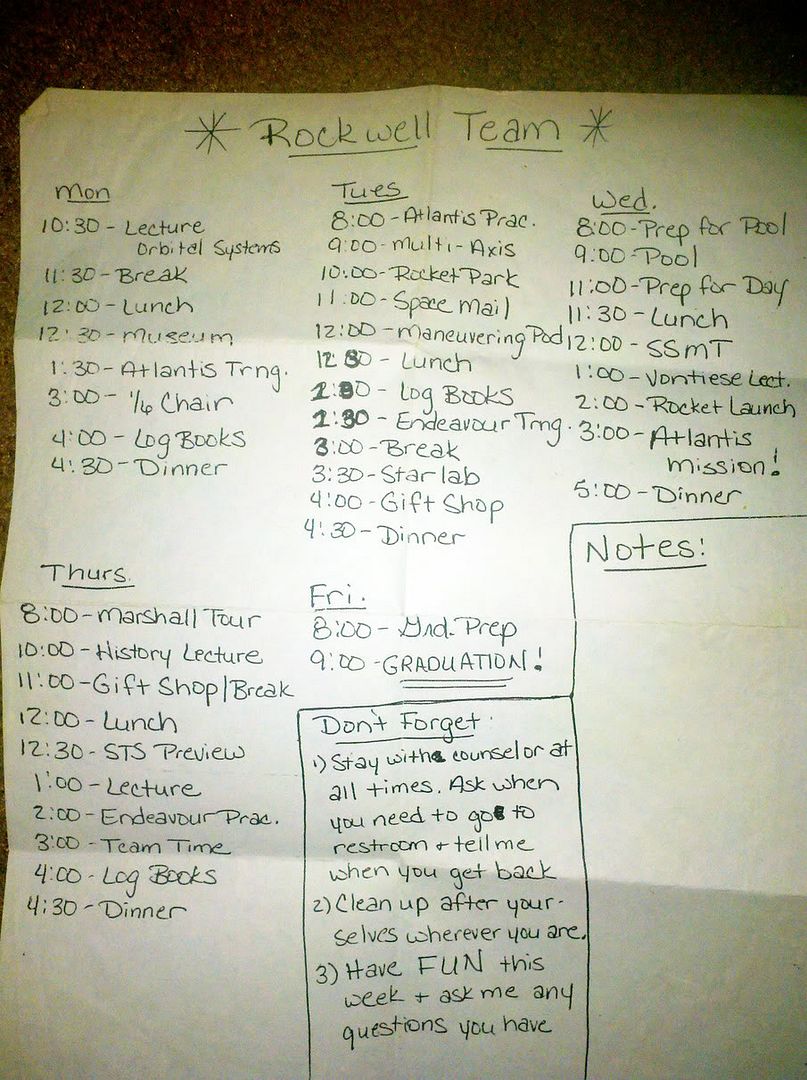 * Rockwell Team *
Mon
10:30 - Lecture
Orbital Systems
11:30 - Break
12:00 - Lunch
12:30 - Museum
1:30 - Atlantis Trng.
3:00 - 1/6 Chair
4:00 - Log Books
4:30 - Dinner
Tues
8:00 - Atlantis Prac.
9:00 - Multi-Axis
10:00 - Rocket Park
11:00 - Space Mail
12:00 - Maneuvering Pod
12:30 - Lunch
1:00 - Log Books
1:30 - Endeavour Trng.
3:00 - Break
3:30 - Starlab
4:00 - Gift Shop
4:30 - Dinner
Wed.
8:00 - Prep for Pool
9:00 - Pool
11:00 - Prep for Day
11:30 - Lunch
12:00 - SSMT
1:00 - Vontiese Lect.
2:00 - Rocket Launch
3:00 - Atlantis
Mission!
5:00 - Dinner
Thurs.
8:00 - Marshall Tour
10:00 - History Lecture
11:00 - Gift Shop/Break
12:00 - Lunch
12:30 - STS Preview
1:00 - Lecture
2:00 - Endeavour Prac.
3:00 - Team Time
4:00 - Log Books
4:30 - Dinner
Fri.
8:00 - Grd. Prep
9:00 - GRADUATION!
Don't Forget:
1) Stay with counselor at
all times. Ask when
you need to go to
restroom + tell me
when you get back
2) Clean up after your-
selves wherever you are.
3) Have FUN this
week + ask me any
questions you have
Notes: